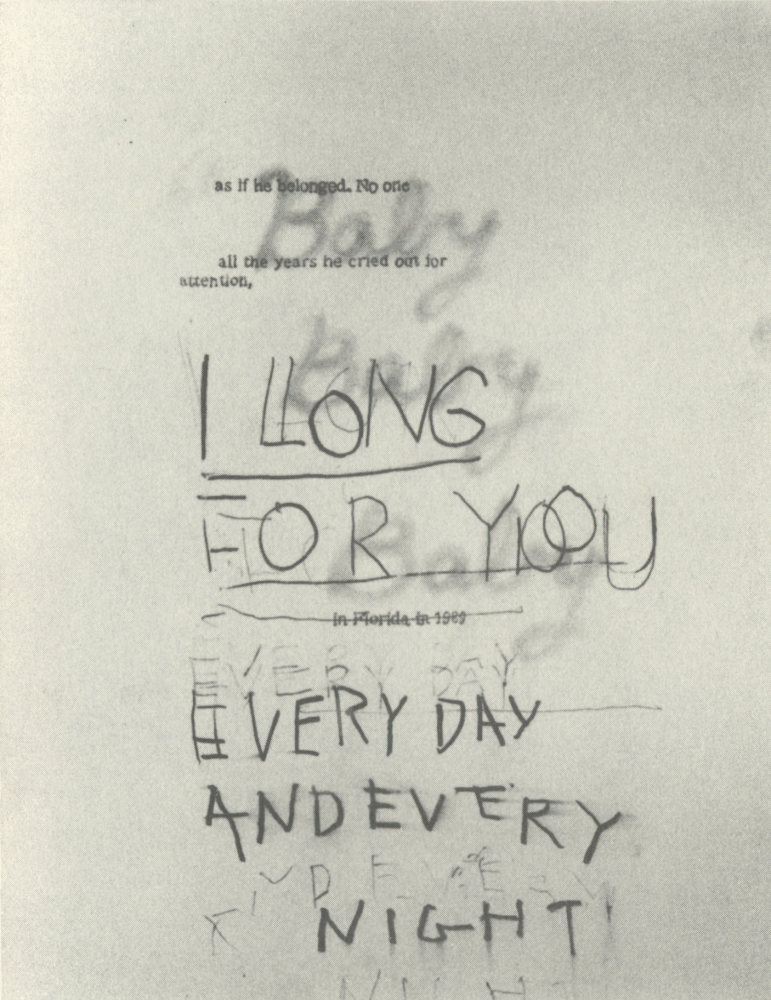 as if he belonged. No one
Baby
all the years he cried out for
attention,
Baby
I LLONG
FOR YOU
Baby
in Florida in 1989
EVERY DAY
EVERY DAY
AND EVERY
AND EVERY
NIGHT
NIGHT